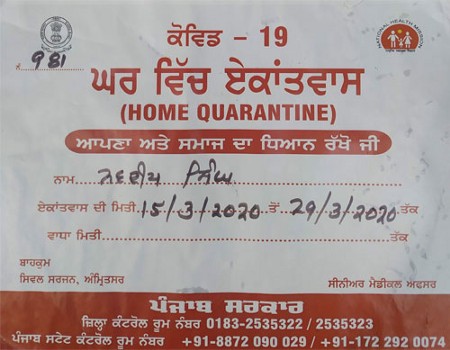 ਕੋਵਿਡ - 19
NATIONAL HEALTH MISSION
ਨੰ. 981
ਘਰ ਵਿੱਚ ਏਕਾਂਤਵਾਸ
(HOME QUARANTINE)
ਆਪਣਾ ਅਤੇ ਸਮਾਜ ਦਾ ਧਿਆਨ ਰੱਖੋ ਜੀ
ਨਾਮ ਨਵਦੀਪ ਸਿੰਘ
ਏਕਾਂਤਵਾਸ ਦੀ ਮਿਤੀ 15/3/2020 ਤੋਂ 29/3/2020 ਤੱਕ
ਵਾਧਾ ਮਿਤੀ ਤੱਕ
ਬਾਹਕੁਮ
ਸਿਵਲ ਸਰਜਨ, ਅੰਮ੍ਰਿਤਸਰ ਸੀਨੀਅਰ ਮੈਡੀਕਲ ਅਫਸਰ
ਪੰਜਾਬ ਸਰਕਾਰ
ਜ਼ਿਲ੍ਹਾ ਕੰਟਰੋਲ ਰੂਮ ਨੰਬਰ 0183-2535322 / 2535323
ਪੰਜਾਬ ਸਟੇਟ ਕੰਟਰੋਲ ਰੂਮ ਨੰਬਰ +91-8872 090 029 / +91-172 292 0074